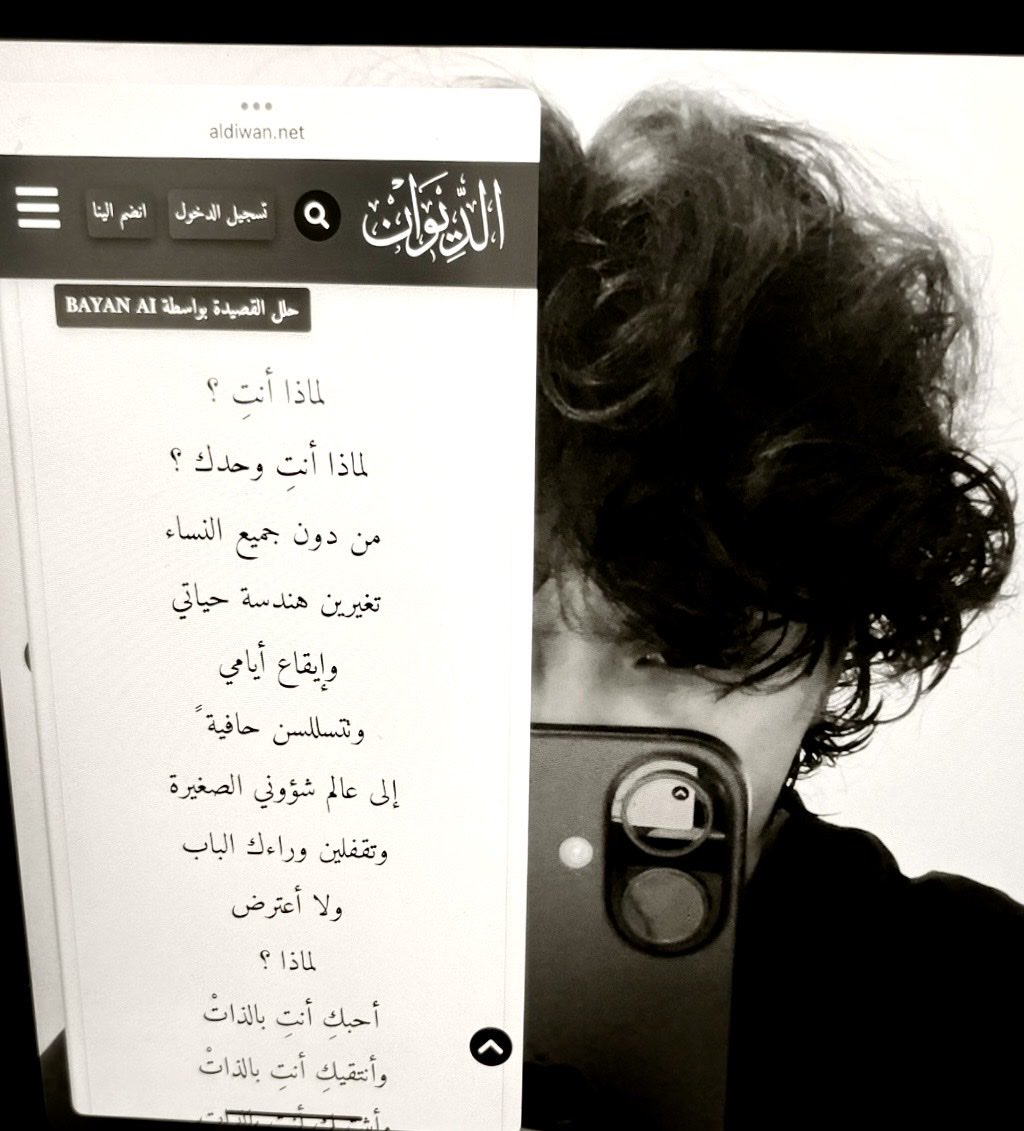 aldiwan.net
الدِّيْوَانْ
تسجيل الدخول
انضم الينا
حلل القصيدة بواسطة BAYAN AI
لماذا أنتِ ؟
لماذا أنتِ وحدك ؟
من دون جميع النساء
تغيرين هندسة حياتي
وإيقاع أيامي
وتتسللسن حافية ً
إلى عالم شؤوني الصغيرة
وتقفلين وراءك الباب
ولا أعترض
لماذا ؟
أحبكِ أنتِ بالذاتْ
وأنتقيكِ أنتِ بالذاتْ